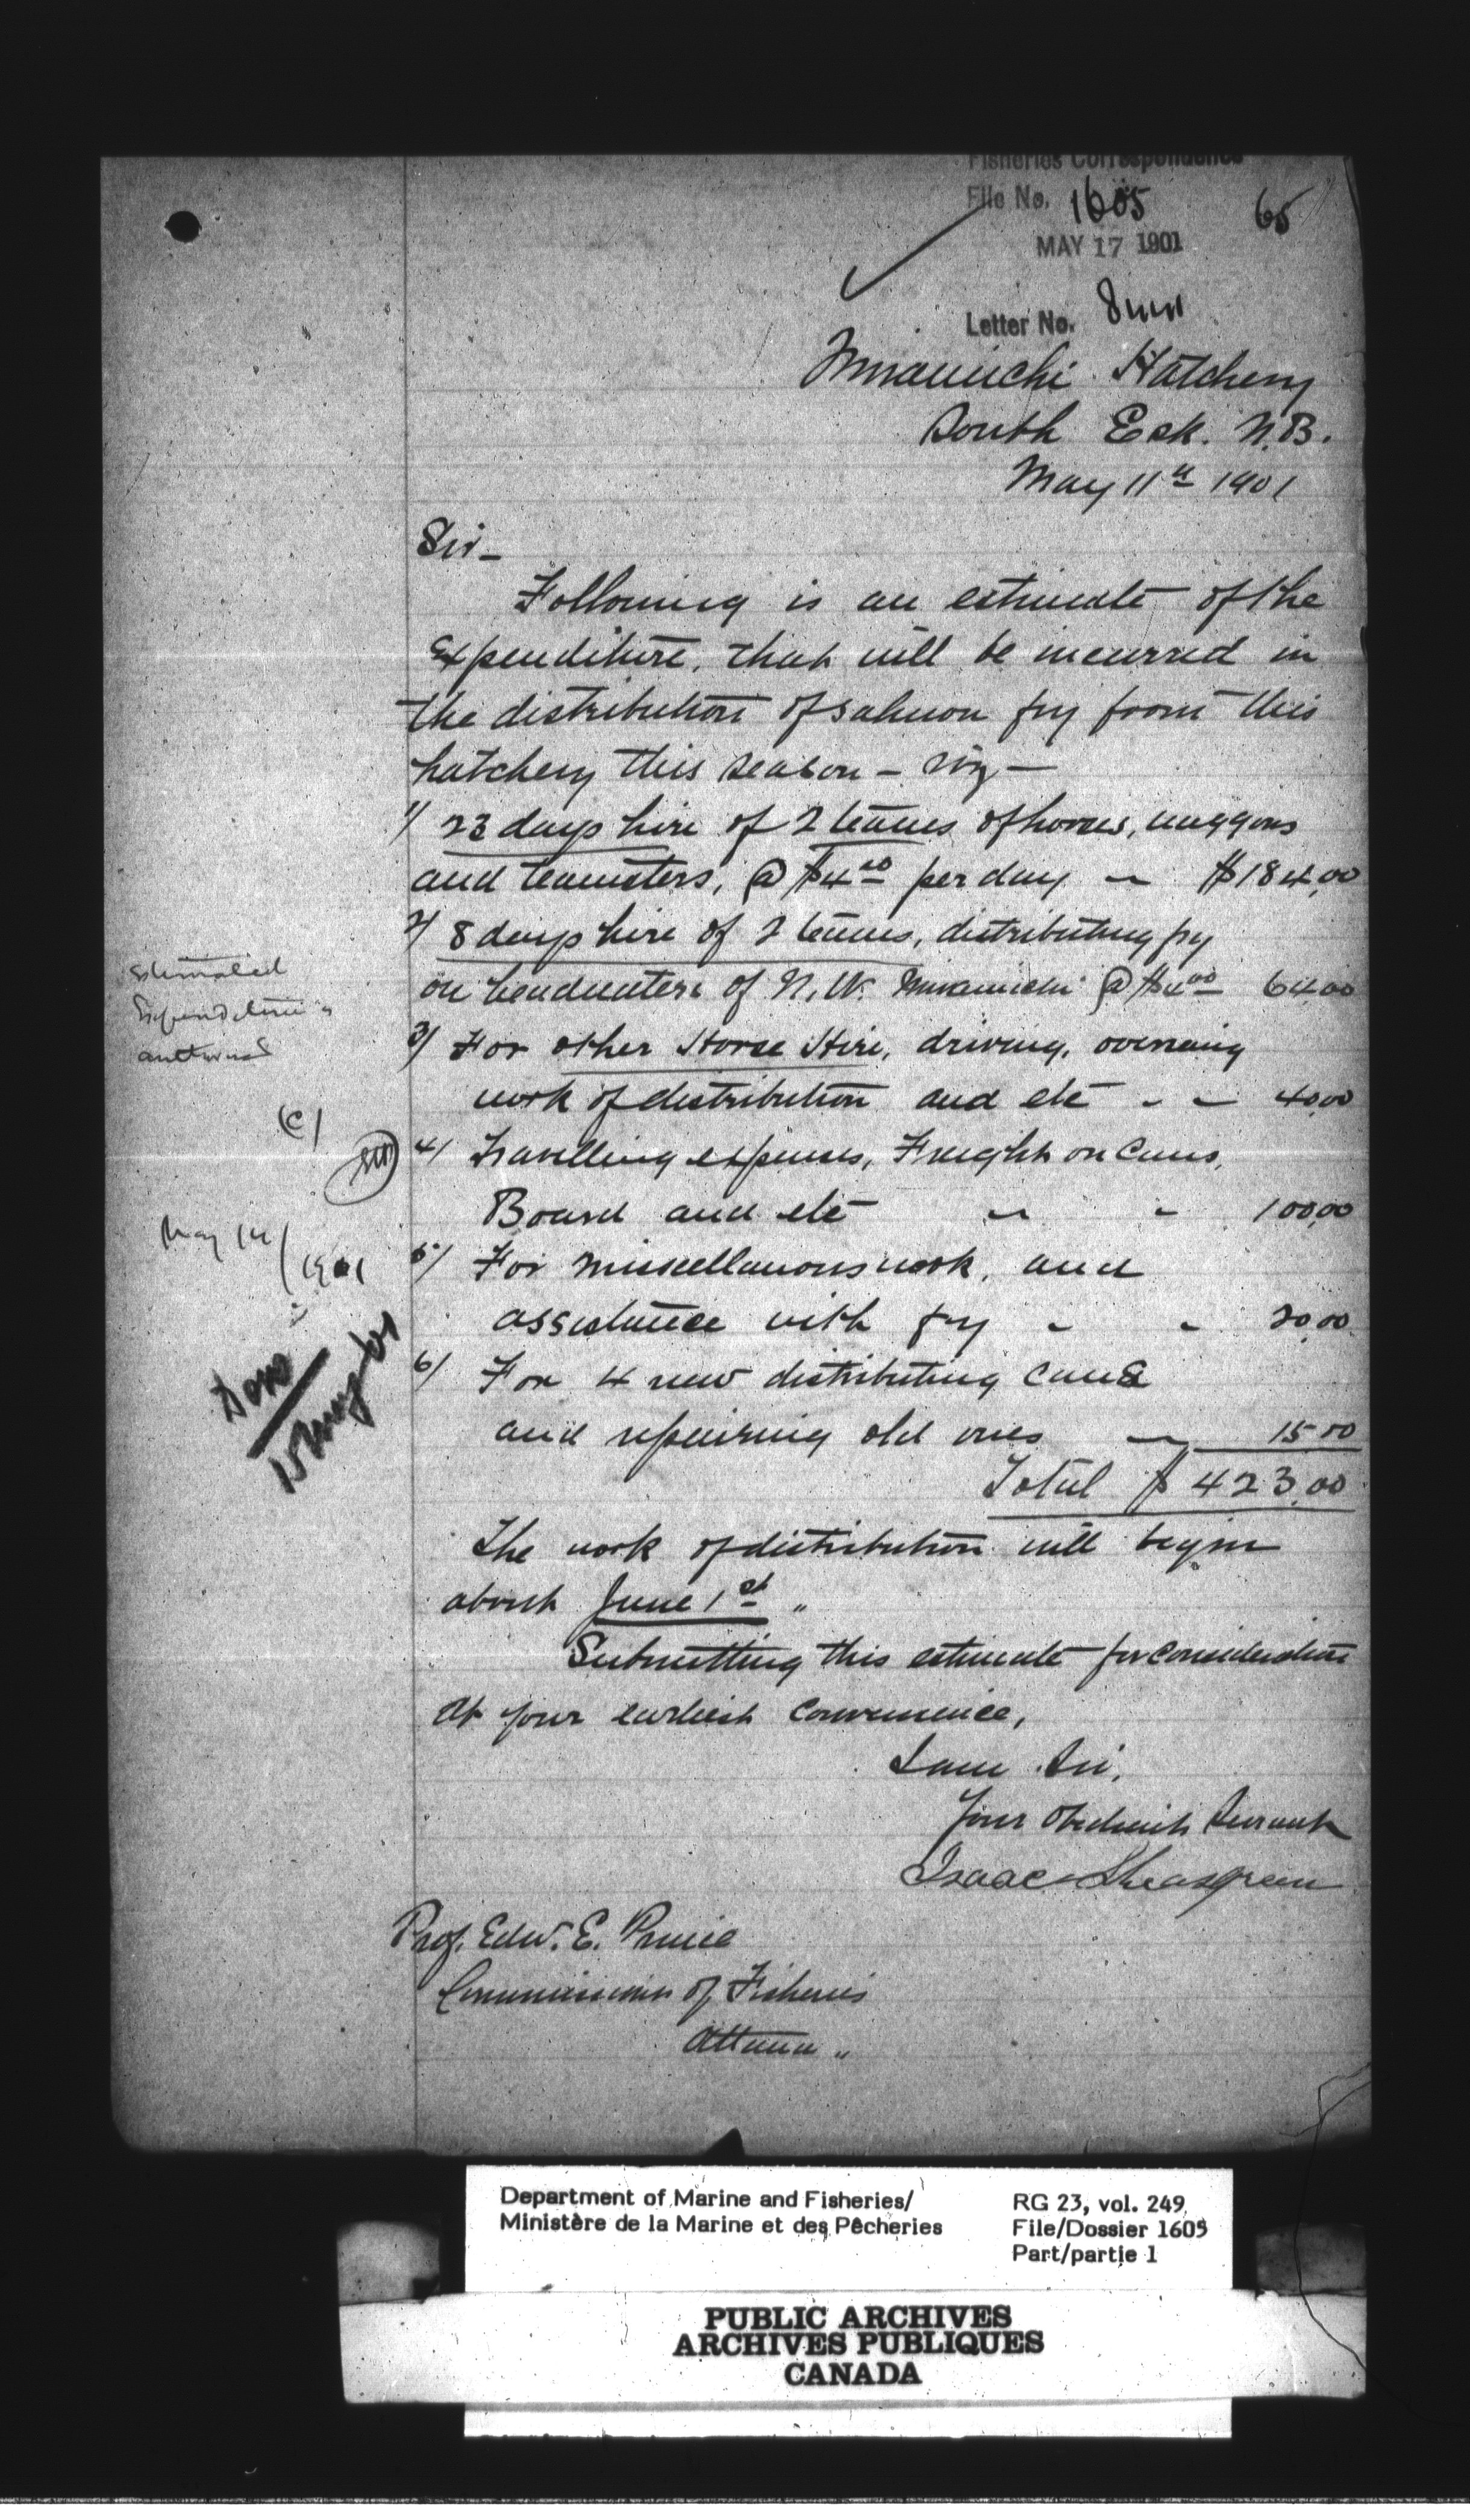 Fisheries Correspondence
File No. 1605
65
MAY 17 1901
Letter No.
Miramichi Hatchery
South Esk. N.B.
May 11th 1901
Sir-
Following is an estimate of the
Expenditure, that will be incurred in
the distribution of salmon fry from this
hatchery this season - viz -
1/ 23 days hire of 2 teams of horses, waggons
and teamsters, @ $4.00 per day - $184.00
2/ 8 days hire of 2 teams, distributing fry
on headwaters of N.W. Miramichi @ $4.00 64.00
3/ For other Horse Hire, driving, overseeing
work of distribution and etc - - 40.00
4/ Travelling expenses, Freight on Cans,
Board and etc - - 100.00
5/ For miscellanous work, and
assistance with fry - - 20.00
6/ For 4 new distributing Cans
and repairing old ones - 15.00
Total $ 423.00
The work of distribution will begin
about June 1st "
Submitting this estimate for Consideration
At your earliest Convenience,
I am Sir,
Your Obedient Servant
Isaac Sheasgreen
Prof. Edw. E. Prince
Commissioner of Fisheries
Ottawa "
Estimated
Expenditure
authorised
May 14/1901
Department of Marine and Fisheries/
Ministère de la Marine et des Pêcheries
RG 23, vol. 249
File/Dossier 1605
Part/partie 1
PUBLIC ARCHIVES
ARCHIVES PUBLIQUES
CANADA